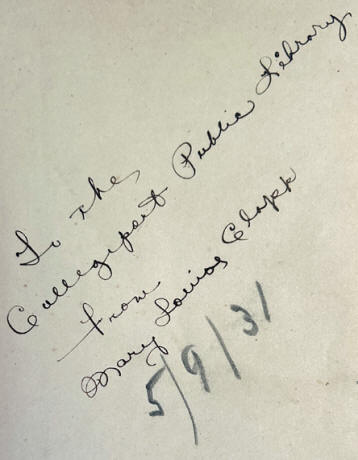 To the
Collegeport Public Library
from
Mary Louise Clapp
5/9/31